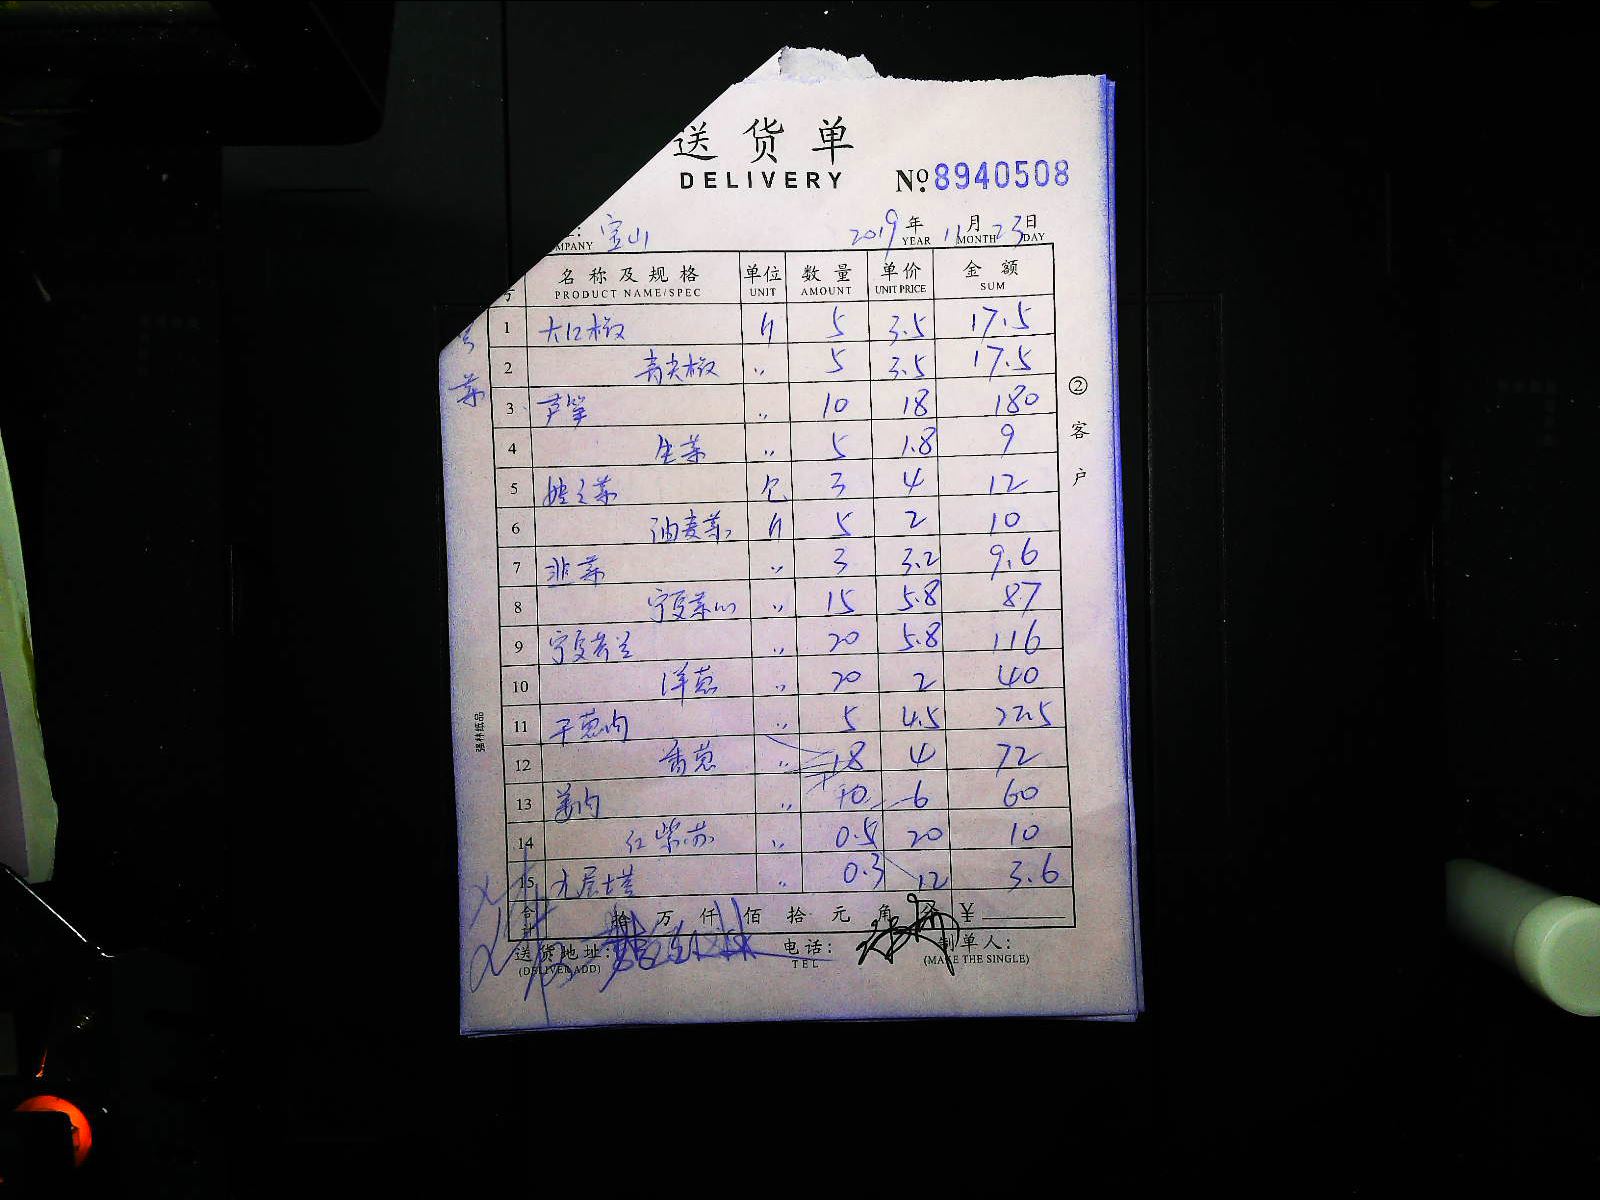 送货单
DELIVERY
№:8940508
MPANY 宝山 2019年 YEAR 11月 MONTH 23日 DAY
名称及规格 PRODUCT NAME/SPEC 单位 UNIT 数量 AMOUNT 单价 UNIT PRICE 金额 SUM
1 大红椒 斤 5 3.5 17.5
2 青尖椒 〃 5 3.5 17.5
3 芦笋 〃 10 18 180
4 生菜 〃 5 1.8 9
5 娃娃菜 包 3 4 12
6 油麦菜 斤 5 2 10
7 韭菜 〃 3 3.2 9.6
8 宁夏菜心 〃 15 5.8 87
9 宁夏芥兰 〃 20 5.8 116
10 洋葱 〃 20 2 40
11 干葱肉 〃 5 4.5 22.5
12 香葱 〃 18 4 72
13 姜肉 〃 10 6 60
14 红紫苏 〃 0.5 20 10
15 九层塔 〃 0.3 12 3.6
合计 拾 万 仟 佰 拾 元 角 分 ¥
送货地址: 电话: 制单人:
(DELIVER ADD) TEL (MAKE THE SINGLE)
②客户
强林纸品